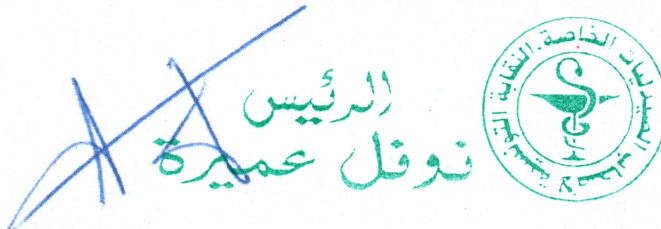 الرئيس
نوفل عميرة
النقابة التونسية لأصحاب الصيدليات الخاصة